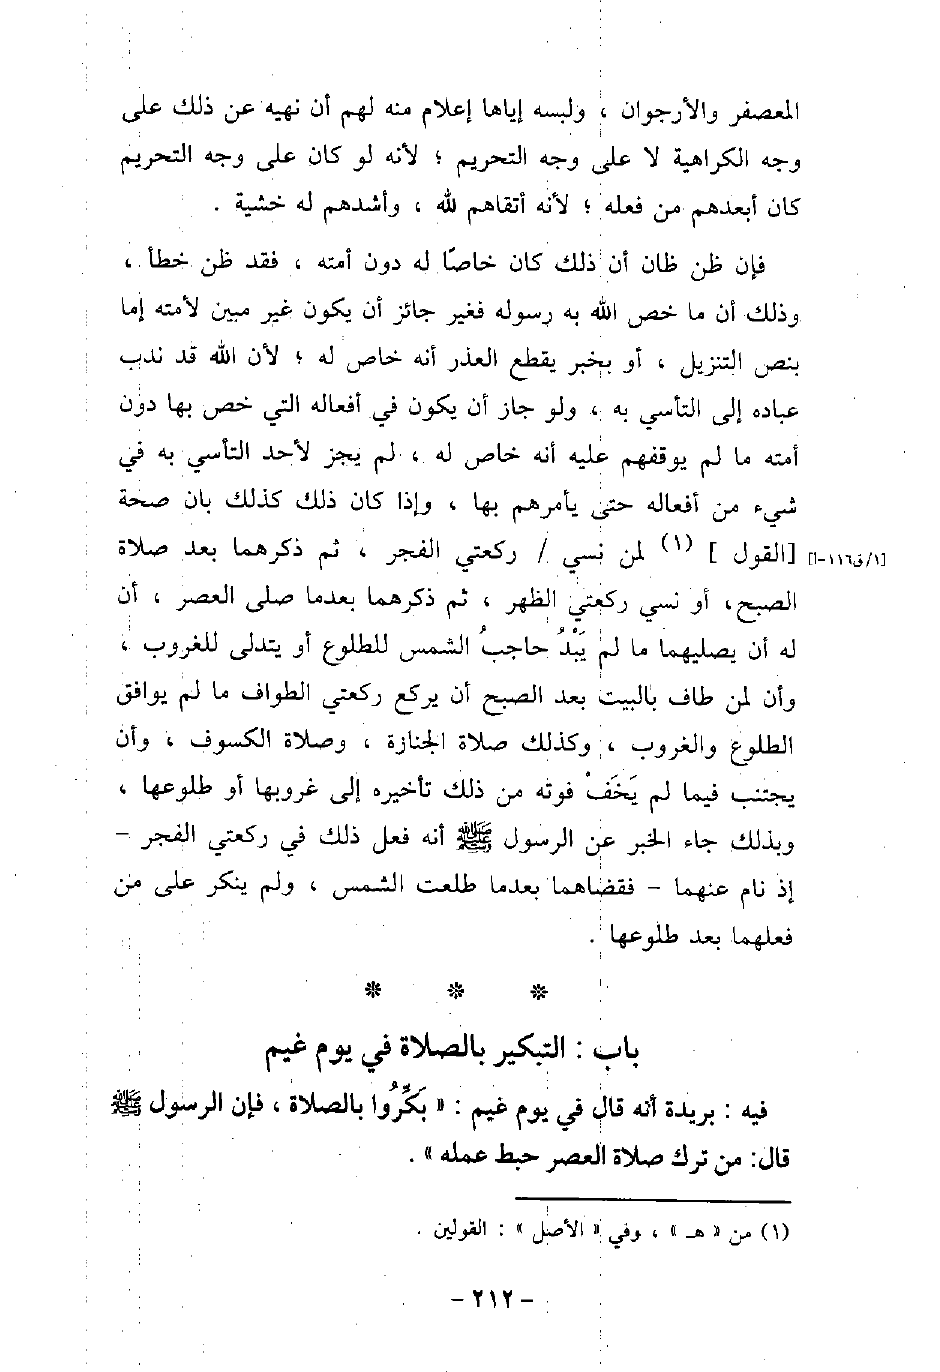 المعصفر والأرجوان ، ولبسه إياها إعلام منه لهم أن نهيه عن ذلك على
وجه الكراهية لا على وجه التحريم ؛ لأنه لو كان على وجه التحريم
كان أبعدهم من فعله ؛ لأنه أتقاهم لله ، وأشدهم له خشية .
فإن ظن ظان أن ذلك كان خاصًا له دون أمته ، فقد ظن خطأ ،
وذلك أن ما خص الله به رسوله فغير جائز أن يكون غير مبين لأمته إما
بنص التنزيل ، أو بخبر يقطع العذر أنه خاص له ؛ لأن الله قد ندب
عباده إلى التأسي به ، ولو جاز أن يكون في أفعاله التي خص بها دون
أمته ما لم يوقفهم عليه أنه خاص له ، لم يجز لأحد التأسي به في
شيء من أفعاله حتى يأمرهم بها ، وإذا كان ذلك كذلك بان صحة
[١/ق١١٦-أ] [القول ] (١) لمن نسي / ركعتي الفجر ، ثم ذكرهما بعد صلاة
الصبح، أو نسي ركعتي الظهر ، ثم ذكرهما بعدما صلى العصر ، أن
له أن يصليهما ما لم يَبْدُ حاجبُ الشمس للطلوع أو يتدلى للغروب ،
وأن لمن طاف بالبيت بعد الصبح أن يركع ركعتي الطواف ما لم يوافق
الطلوع والغروب ، وكذلك صلاة الجنازة ، وصلاة الكسوف ، وأن
يجتنب فيما لم يَخَفْ فوته من ذلك تأخيره إلى غروبها أو طلوعها ،
وبذلك جاء الخبر عن الرسول ﷺ أنه فعل ذلك في ركعتي الفجر –
إذ نام عنهما – فقضاهما بعدما طلعت الشمس ، ولم ينكر على من
فعلهما بعد طلوعها .
* * *
باب : التبكير بالصلاة في يوم غيم
فيه : بريدة أنه قال في يوم غيم : « بَكِّرُوا بالصلاة ، فإن الرسول ﷺ
قال: من ترك صلاة العصر حبط عمله » .
(١) من « هـ » ، وفي « الأصل » : القولين .
– ٢١٢ –